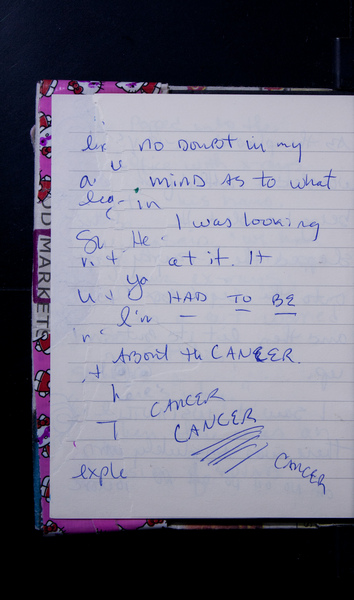 no DOUBT in my
MIND AS to what
in
I was looking
He
at it. It
Ya
HAD TO BE
I'm
ABOUT th CANCER.
h
CANCER
T CANCER
CANCER
exple
D MARKETE